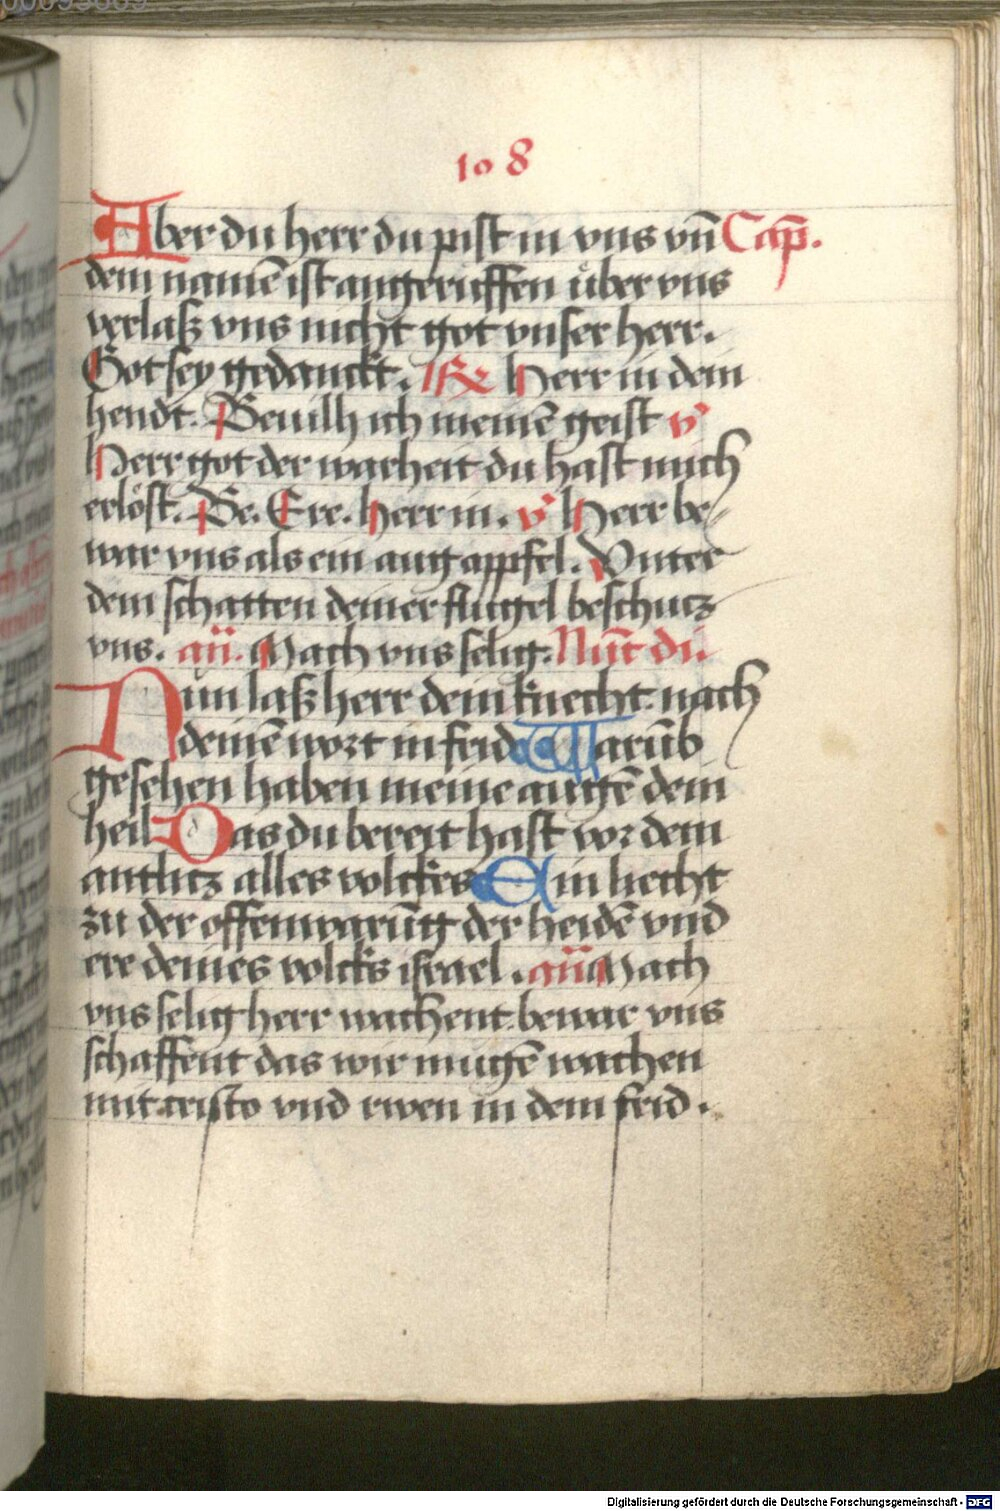 108
Aber du herr du pist in vns vn̄ Cap̄.
dein namē ist angeruffen über vns
verlaß vns nicht got vnser herr.
Got sey gedanckt. Herr in dein
hendt. Beuilh ich meinē geist v̓
Herr got der warheit du hast mich
erlöst. Be. Ere. Herr in. v̓ Herr be/
war vns als ein aug appfel. Vnter
dem schatten deiner flugel beschutz
vns. an̄. Mach vns selig. Nūc di.
Nun laß herr dein knecht nach
deinē wort in frid Warūb
gesehen haben meine augē dein
heil Das du bereyt hast vor dem
antlitz alles volckes Ein liecht
zu der offenwarūg der heidē vnd
ere deines volcks israel. an̄ Mach
vns selig herr wachent bewar vns
schaffent das wir mugē wachen
mit cristo vnd rwen in dem frid.
Digitalisierung gefördert durch die Deutsche Forschungsgemeinschaft - DFG